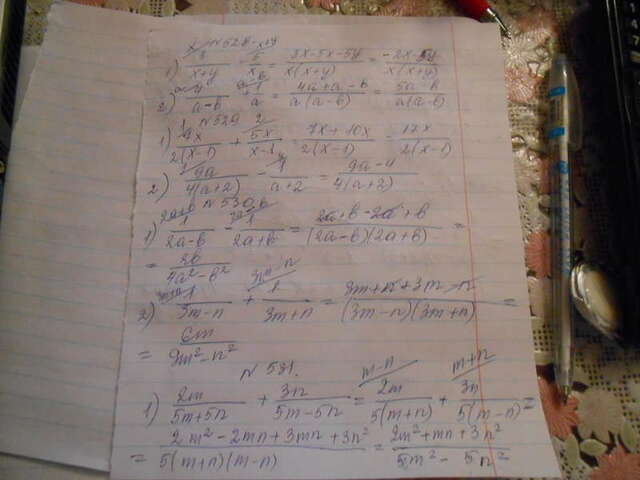 x N 528 -x+y
1) 3/(x+y) - 5/x = (3x-5x-5y)/(x(x+y)) = (-2x-5y)/(x(x+y))
2) 4/(a-b) 1/a = (4a+a-b)/(a(a-b)) = (5a-b)/(a(a-b))
N 529
1) 7x/(2(x-1)) + 5x/(x-1) = (7x+10x)/(2(x-1)) = 17x/(2(x-1))
2) 9a/(4(a+2)) - 1/(a+2) = (9a-4)/(4(a+2))
N 530
1) 1/(2a-b) - 1/(2a+b) = (2a+b-2a+b)/((2a-b)(2a+b)) =
= 2b/(4a²-b²)
2) 1/(3m-n) + 1/(3m+n) = (3m+n+3m-n)/((3m-n)(3m+n)) =
= 6m/(9m²-n²)
N 531.
1) 2m/(5m+5n) + 3n/(5m-5n) = m-n/ 2m/(5(m+n)) + m+n/ 3n/(5(m-n)) =
= (2m²-2mn+3mn+3n²)/(5(m+n)(m-n)) = (2m²+mn+3n²)/(5m²-5n²)